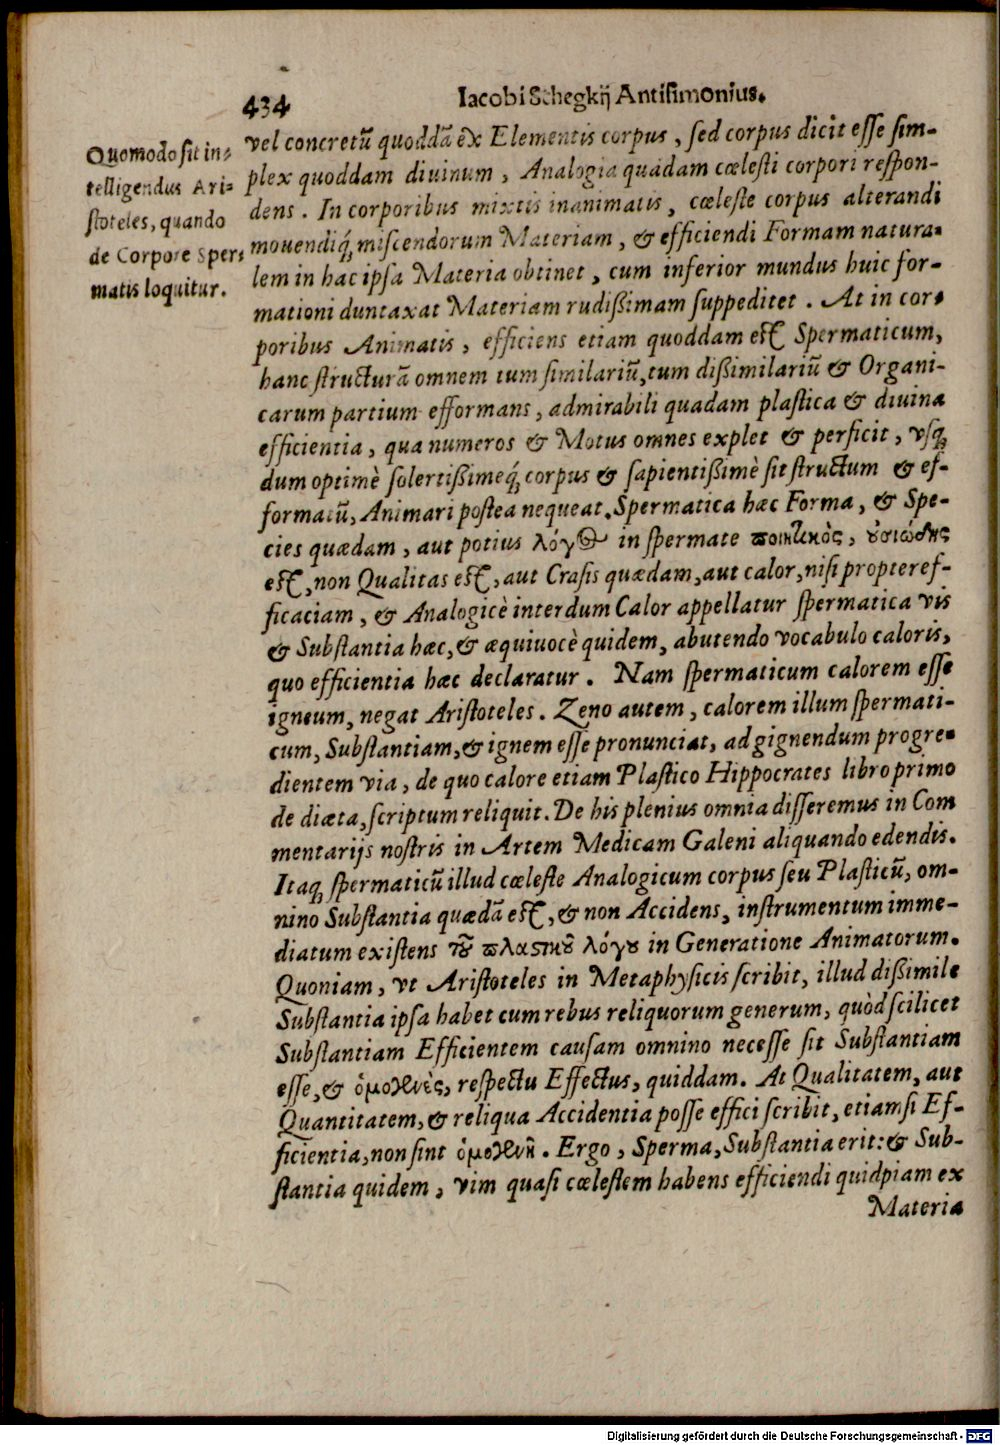 434
Iacobi Schegkij Antisimonius.
Quomodo sit in-
telligendus Ari-
stoteles, quando
de Corpore Sper-
matis loquitur.
vel concretũ quoddã ex Elementis corpus, sed corpus dicit esse sim-
plex quoddam diuinum, Analogia quadam cœlesti corpori respon-
dens. In corporibus mixtis inanimatis, cœleste corpus alterandi
mouendiq́; miscendorum Materiam, & efficiendi Formam natura-
lem in hac ipsa Materia obtinet, cum inferior mundus huic for-
mationi duntaxat Materiam rudißimam suppeditet. At in cor-
poribus Animatis, efficiens etiam quoddam est Spermaticum,
hanc structurã omnem tum similariũ, tum dißimilariũ & Organi-
carum partium efformans, admirabili quadam plastica & diuina
efficientia, qua numeros & Motus omnes explet & perficit, vsq;
dum optimè solertißimeq́; corpus & sapientißimè sit structum & ef-
formatũ, Animari postea nequeat. Spermatica hæc Forma, & Spe-
cies quædam, aut potius λόγος in spermate ποιητικὸς, οὐσιώδης
est, non Qualitas est, aut Crasis quædam, aut calor, nisi propter ef-
ficaciam, & Analogicè interdum Calor appellatur spermatica vis
& Substantia hæc, & æquiuocè quidem, abutendo vocabulo caloris,
quo efficientia hæc declaratur. Nam spermaticum calorem esse
igneum, negat Aristoteles. Zeno autem, calorem illum spermati-
cum, Substantiam, & ignem esse pronunciat, ad gignendum progre-
dientem via, de quo calore etiam Plastico Hippocrates libro primo
de diæta, scriptum reliquit. De his plenius omnia disseremus in Com
mentarijs nostris in Artem Medicam Galeni aliquando edendis.
Itaq; spermaticũ illud cœleste Analogicum corpus seu Plasticũ, om-
nino Substantia quædã est, & non Accidens, instrumentum imme-
diatum existens τοῦ πλαστικοῦ λόγου in Generatione Animatorum.
Quoniam, vt Aristoteles in Metaphysicis scribit, illud dißimile
Substantia ipsa habet cum rebus reliquorum generum, quòd scilicet
Substantiam Efficientem causam omnino necesse sit Substantiam
esse, & ὁμογενὲς, respectu Effectus, quiddam. At Qualitatem, aut
Quantitatem, & reliqua Accidentia posse effici scribit, etiamsi Ef-
ficientia, non sint ὁμογενῆ. Ergo, Sperma, Substantia erit: & Sub-
stantia quidem, vim quasi cœlestem habens efficiendi quidpiam ex
Materia
Digitalisierung gefördert durch die Deutsche Forschungsgemeinschaft - DFG